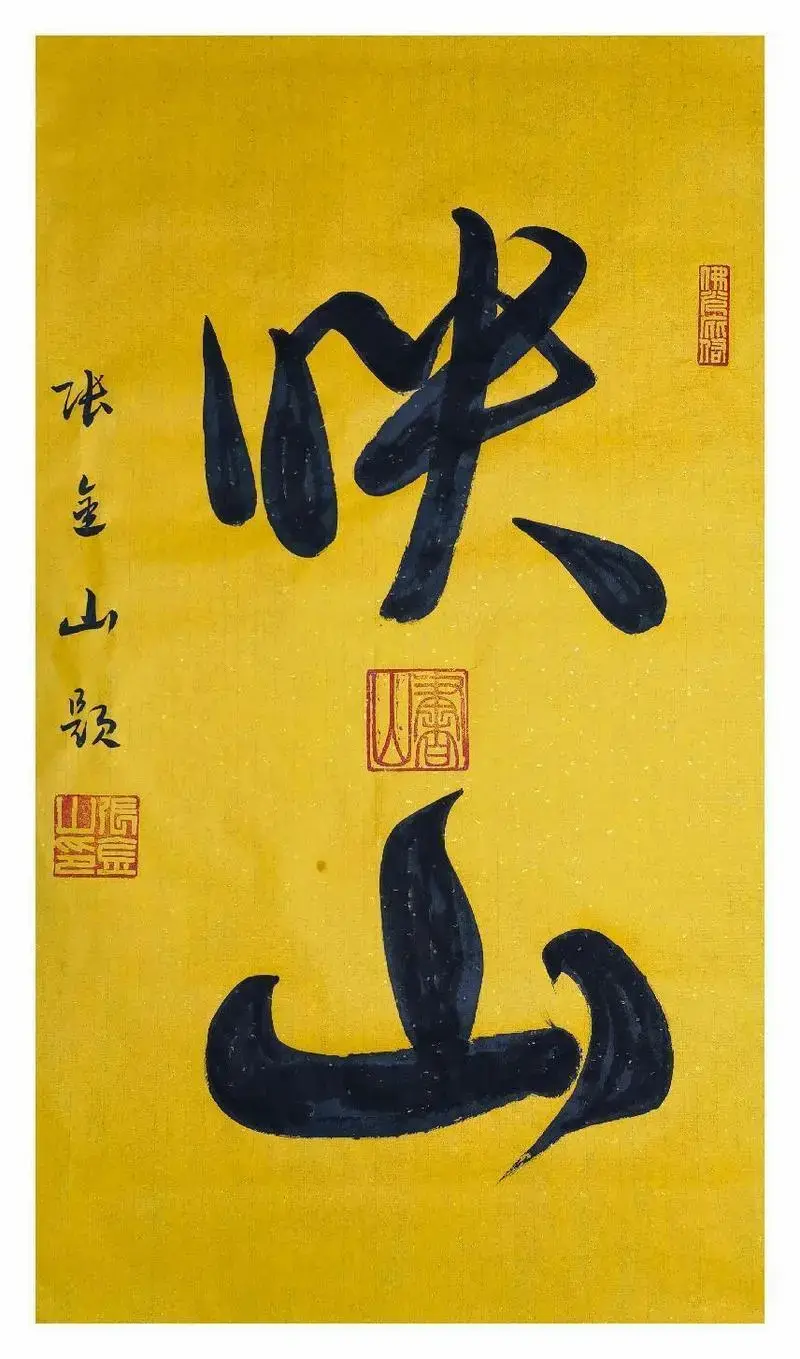 映
山
张金山题
張金山印